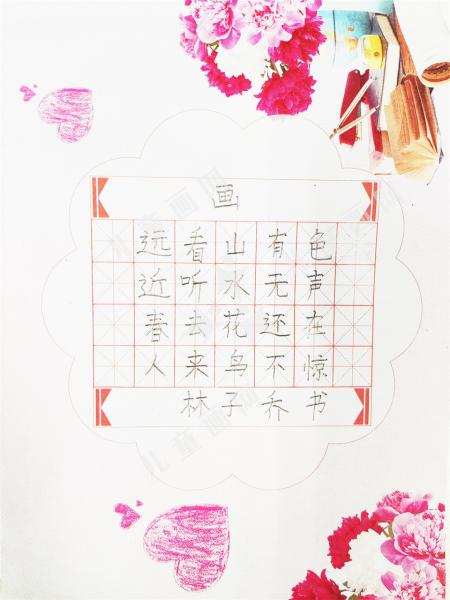 画
远看山有色
近听水无声
春去花还在
人来鸟不惊
林子乔书
儿童画网
儿童画网